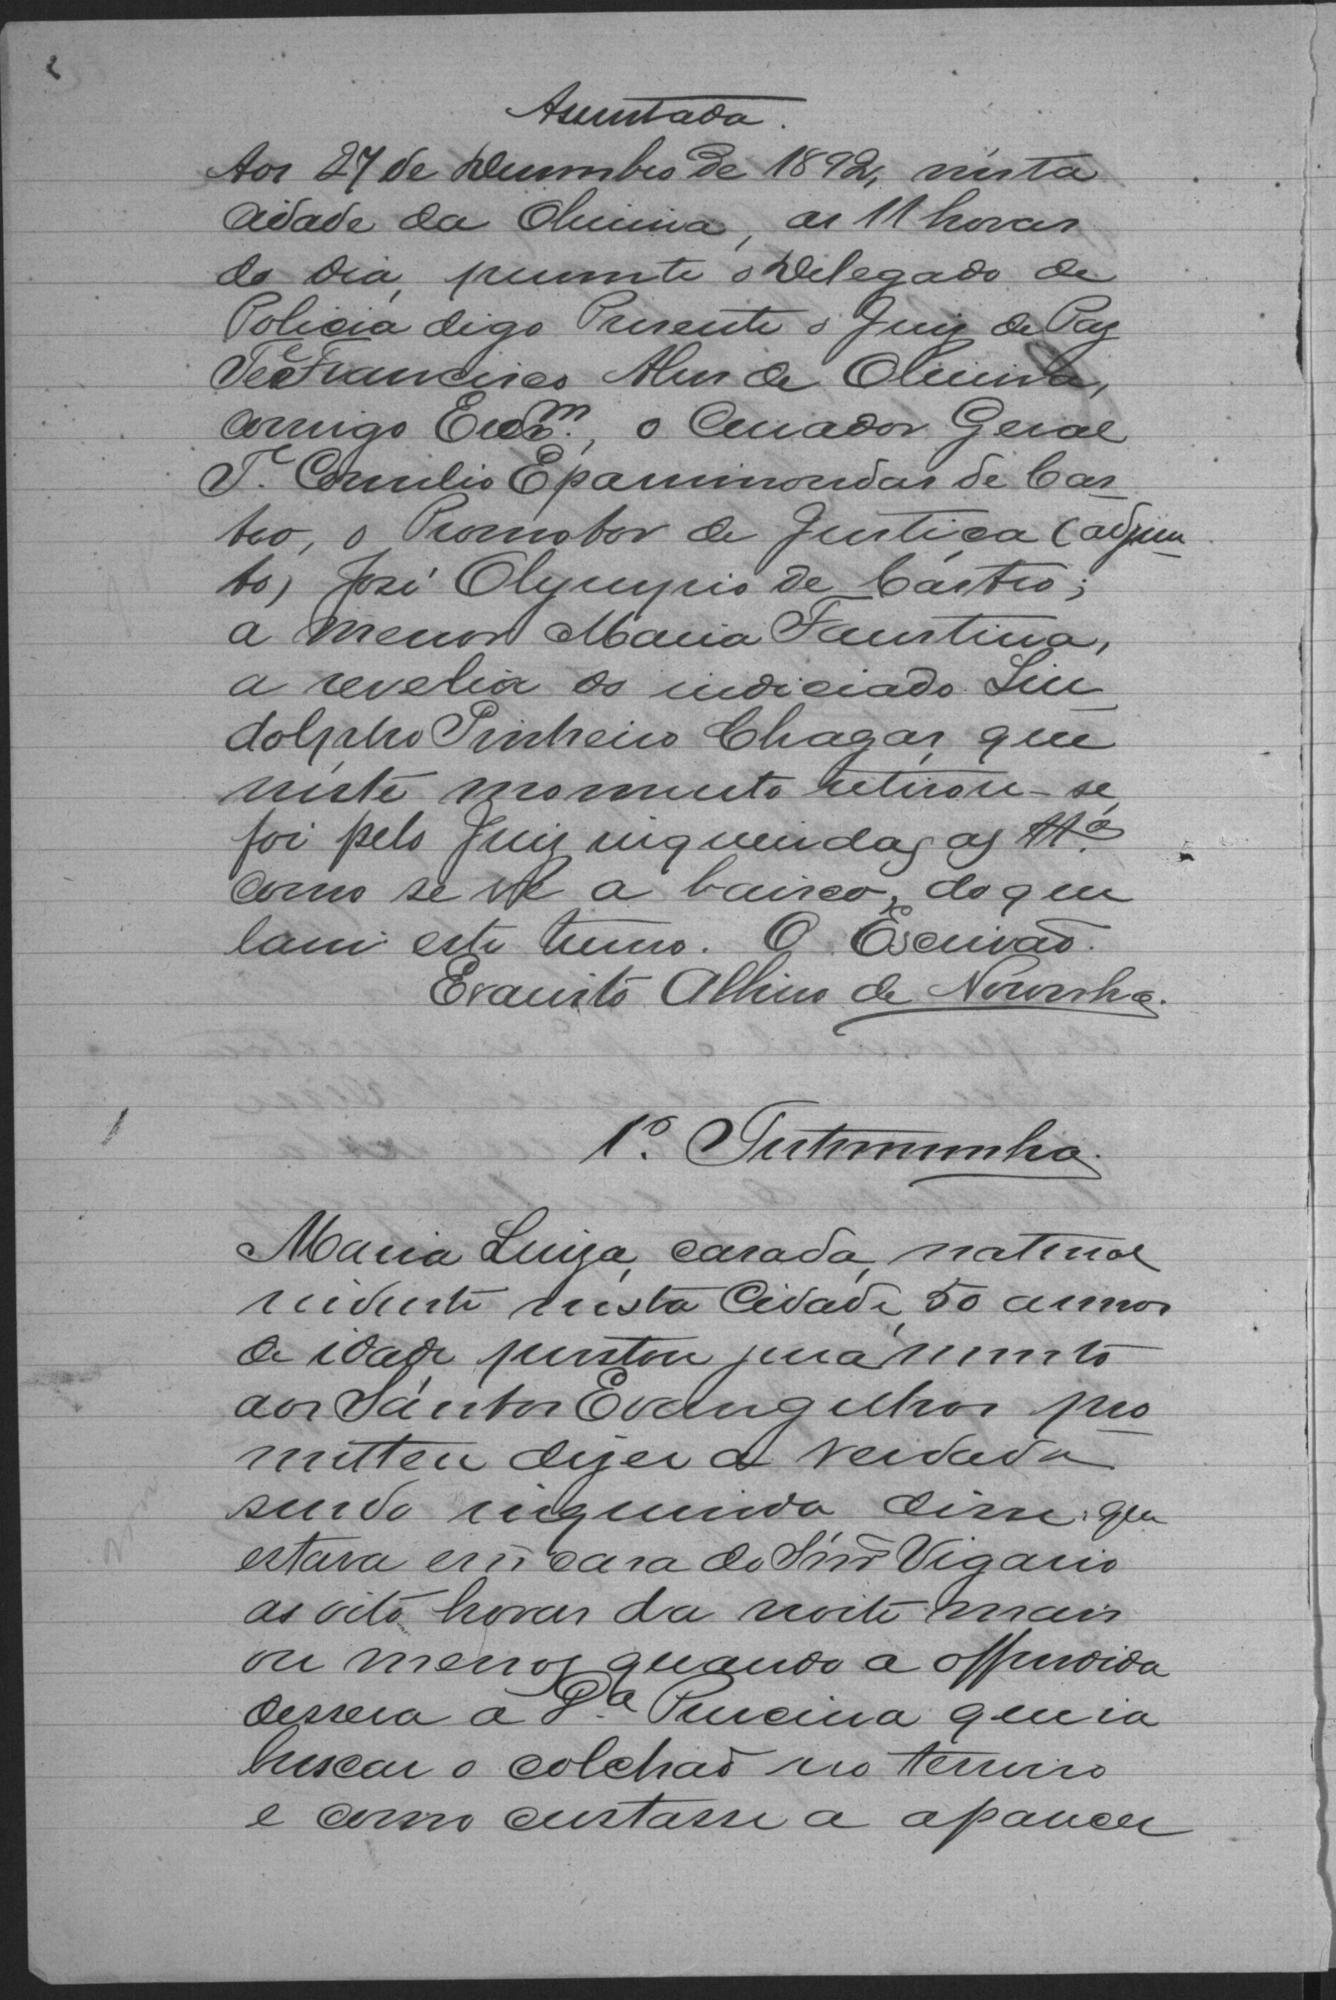 Assentada.
Aos 27 de Dezembro de 1892, nesta
cidade da Oliveira, as 11 horas
do dia, presente o Delegado de
Policia digo Presente o Juiz de Paz
Te Francisco Alves de Oliveira,
comigo Escrm., o Curador Geral
Te. Cornelio Epaminondas de Cas
tro, o Promotor de Justiça (adjun
to) José Olympio de Castro;
a menor Maria Faustina,
a revelia do indiciado Lin
dolpho Pinheiro Chagas, que
neste momento retirou-se,
foi pelo Juiz inqueridas as ttas
como se vê a baixo, do que
lavrei este termo. O Escrivão.
Evaristo Albino de Noronha.
1º. Testemunha.
Maria Luiza, casada, natural
residente nesta Cidade, 50 annos
de idade, prestou juramento
aos Santos Evangelhos pro
metteu dizer a verdade
sendo inquirida disse: que
estava em casa do Snr Vigario
as oito horas da noite mais
ou menos quando a offendida
dissera a Da Purcina que ia
buscar o colchão no terreiro
e como custasse a aparecer